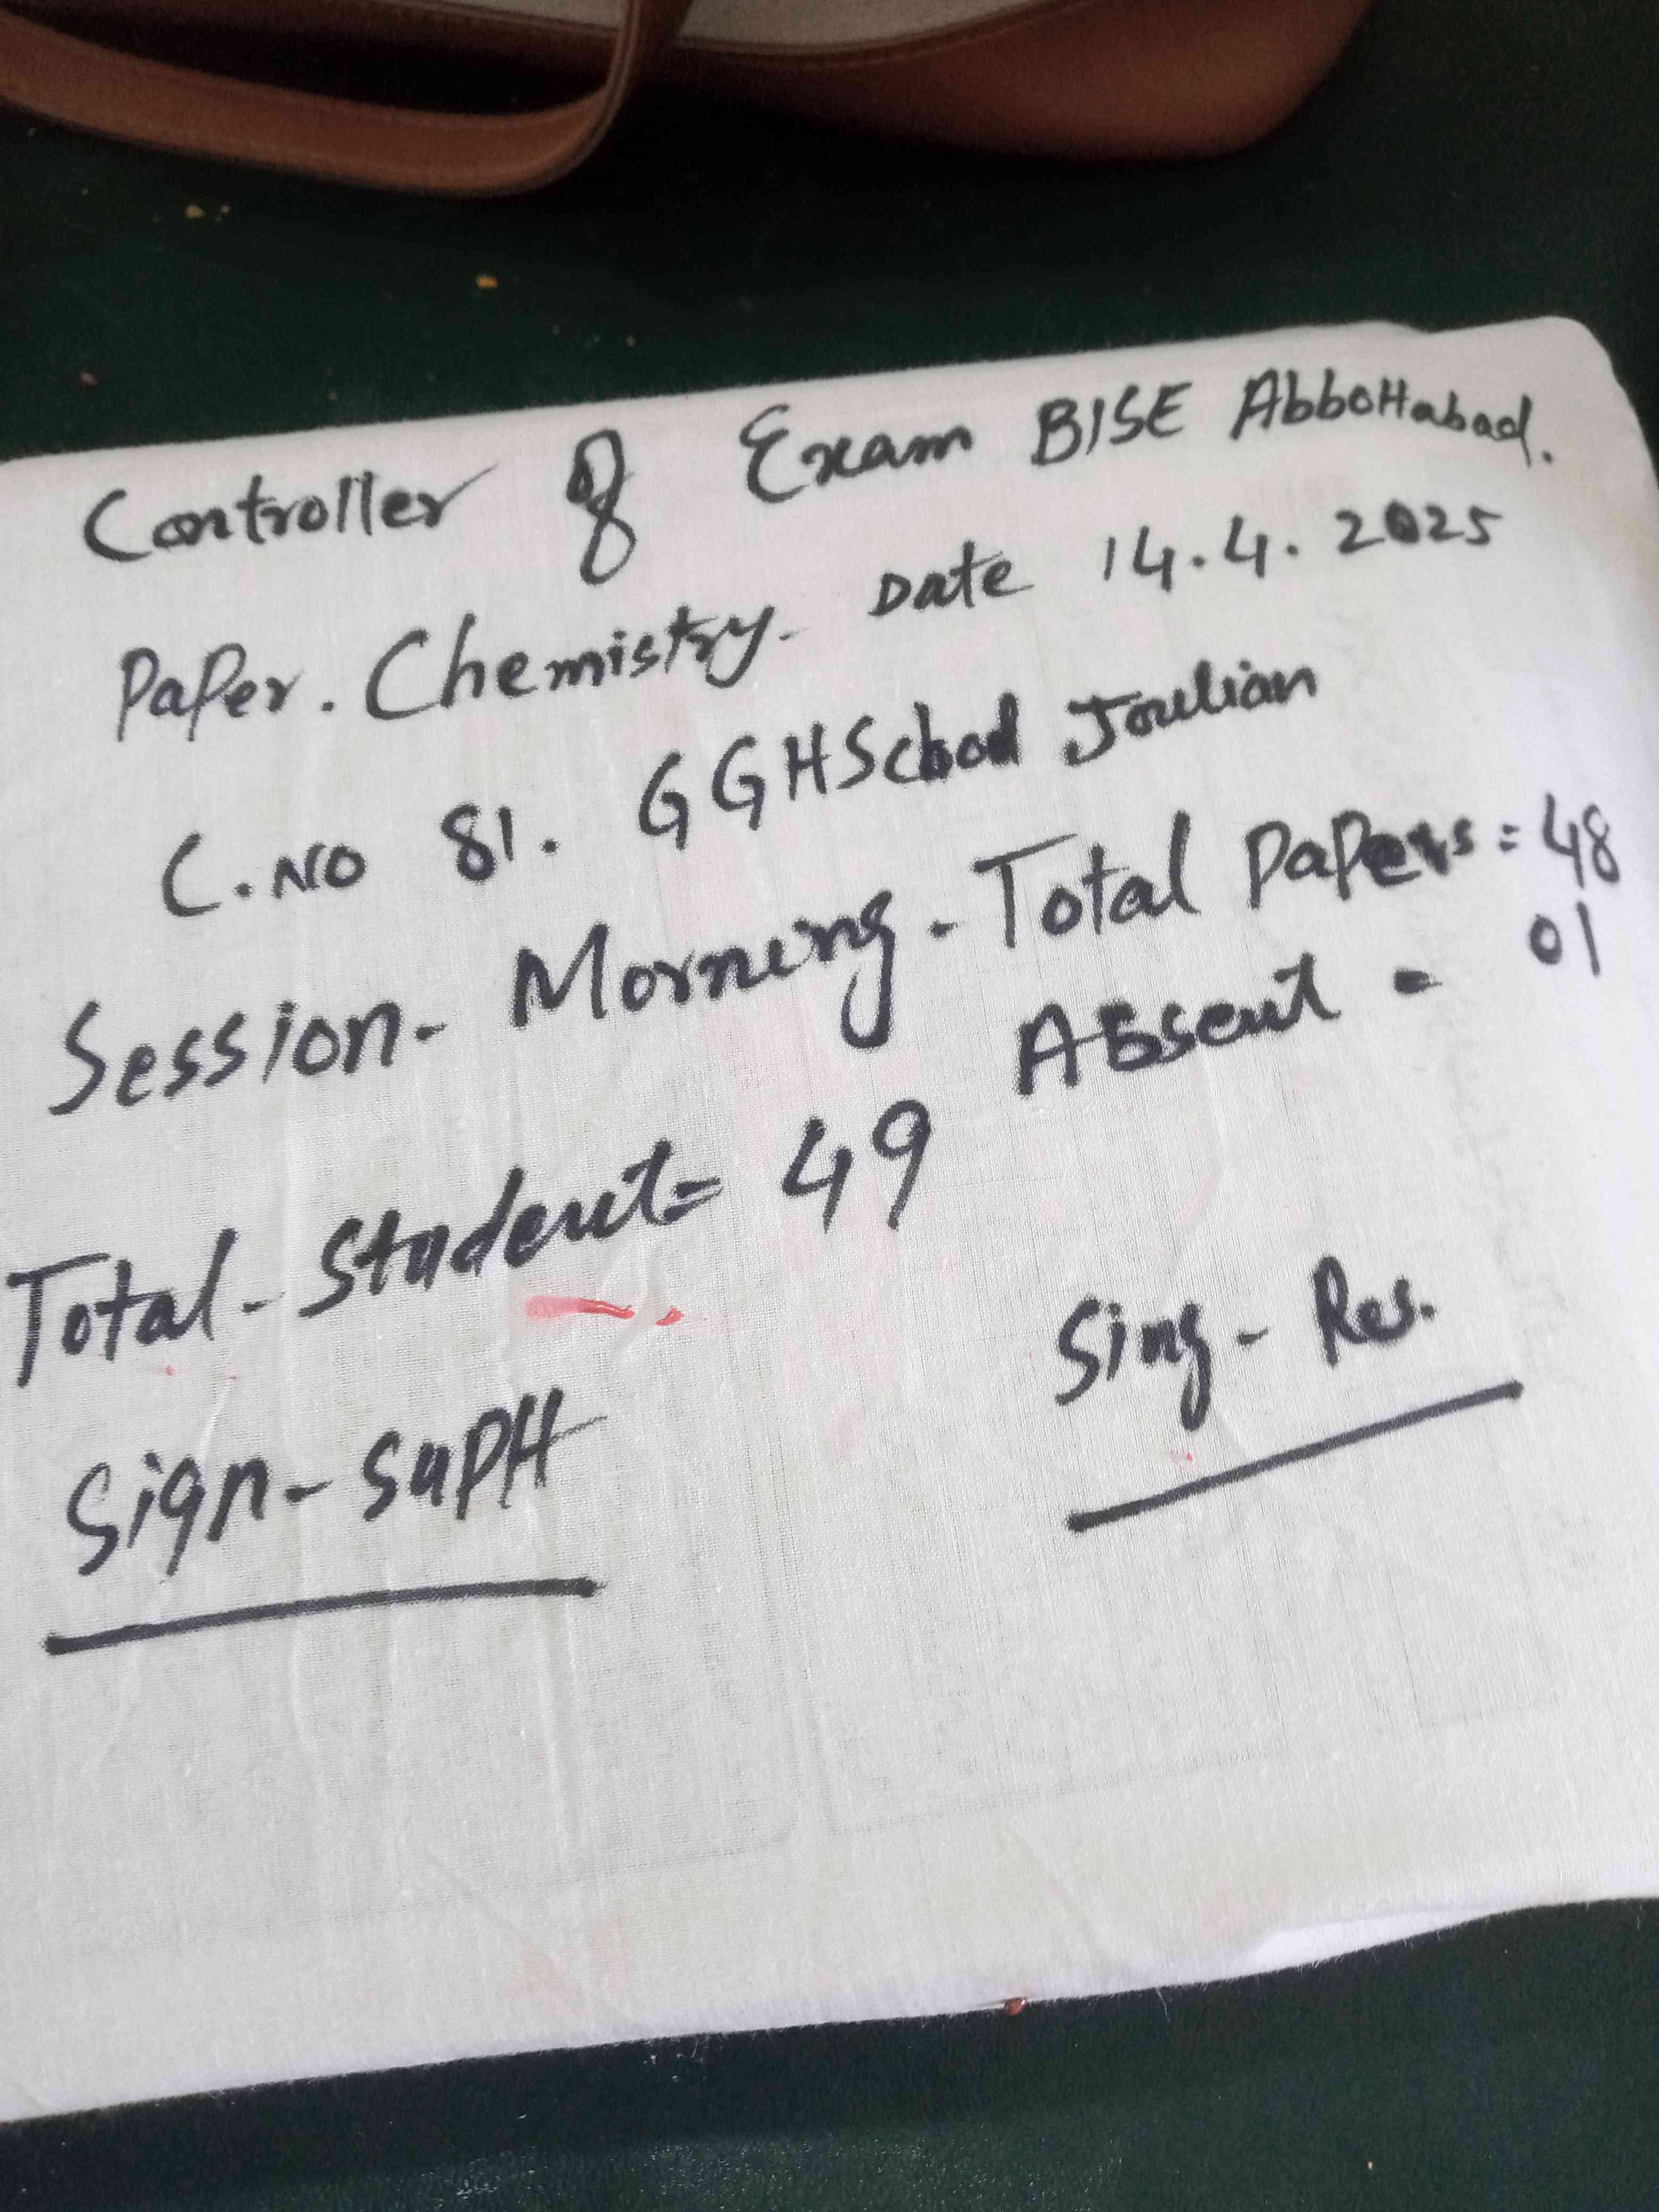 Controller of Exam BISE Abbottabad.
Paper. Chemistry- Date 14.4.2025
C.No 81. GGHSchool Joulian
Session- Morning-Total Papers=48
Absent - 01
Total-Student= 49
Sign-SuPtt Sing-Res.